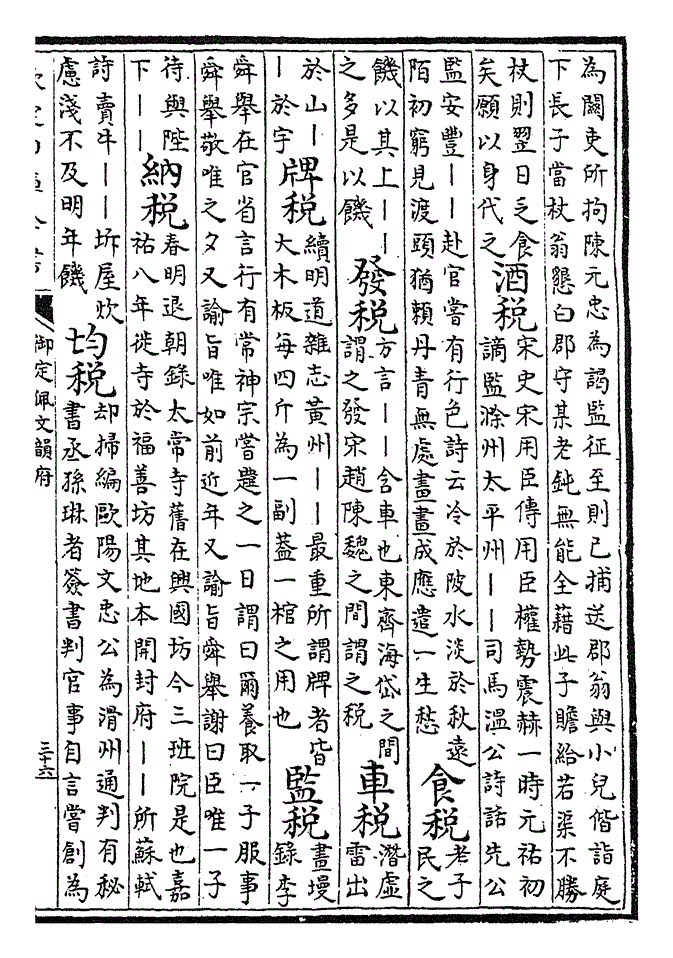 為關吏所拘陳元忠為謁監征至則已捕送郡翁與小兒偕詣庭
下長子當杖翁懇白郡守某老鈍無能全藉此子贍給若渠不勝
杖則翌日乏食
矣願以身代之
酒税
宋史宋用臣傳用臣權勢震赫一時元祐初
謫監滁州太平州丨丨司馬溫公詩話先公
監安豐丨丨赴官嘗有行色詩云冷於陂水淡於秋遠
陌初窮見渡頭猶頼丹青無處畫畫成應遣一生愁
食税
老子
民之
饑以其上丨丨
之多是以饑
發税
方言丨丨含車也東齊海岱之間
謂之發宋趙陳魏之間謂之税
車税
潛虛
雷出
於山丨
丨於宇
牌税
續明道雜志黃州丨丨最重所謂牌者皆
大木板每四斤為一副葢一棺之用也
監税
畫墁
錄李
舜舉在官省言行有常神宗嘗韙之一日謂曰爾養取一子服事
舜舉敬唯之夕又諭旨唯如前近年又諭旨舜舉謝曰臣唯一子
待與陛
下丨丨
納税
春明退朝錄太常寺舊在興國坊今三班院是也嘉
祐八年徙寺於福善坊其地本開封府丨丨所蘇軾
詩賣牛丨丨坼屋炊
慮淺不及明年饑
均税
却掃編歐陽文忠公為滑州通判有秘
書丞孫琳者簽書判官事自言嘗創為
欽定四庫全書
御定佩文韻府
三十六